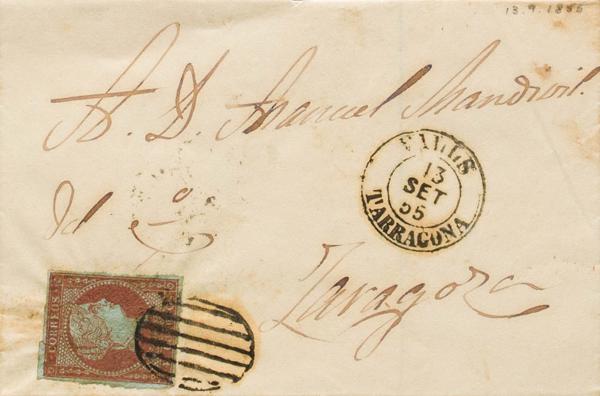 13.9.1855
A. D. Manuel Mandivil.
VALLS
13
SET
55
TARRAGONA
del
Zaragoza
CORREOS